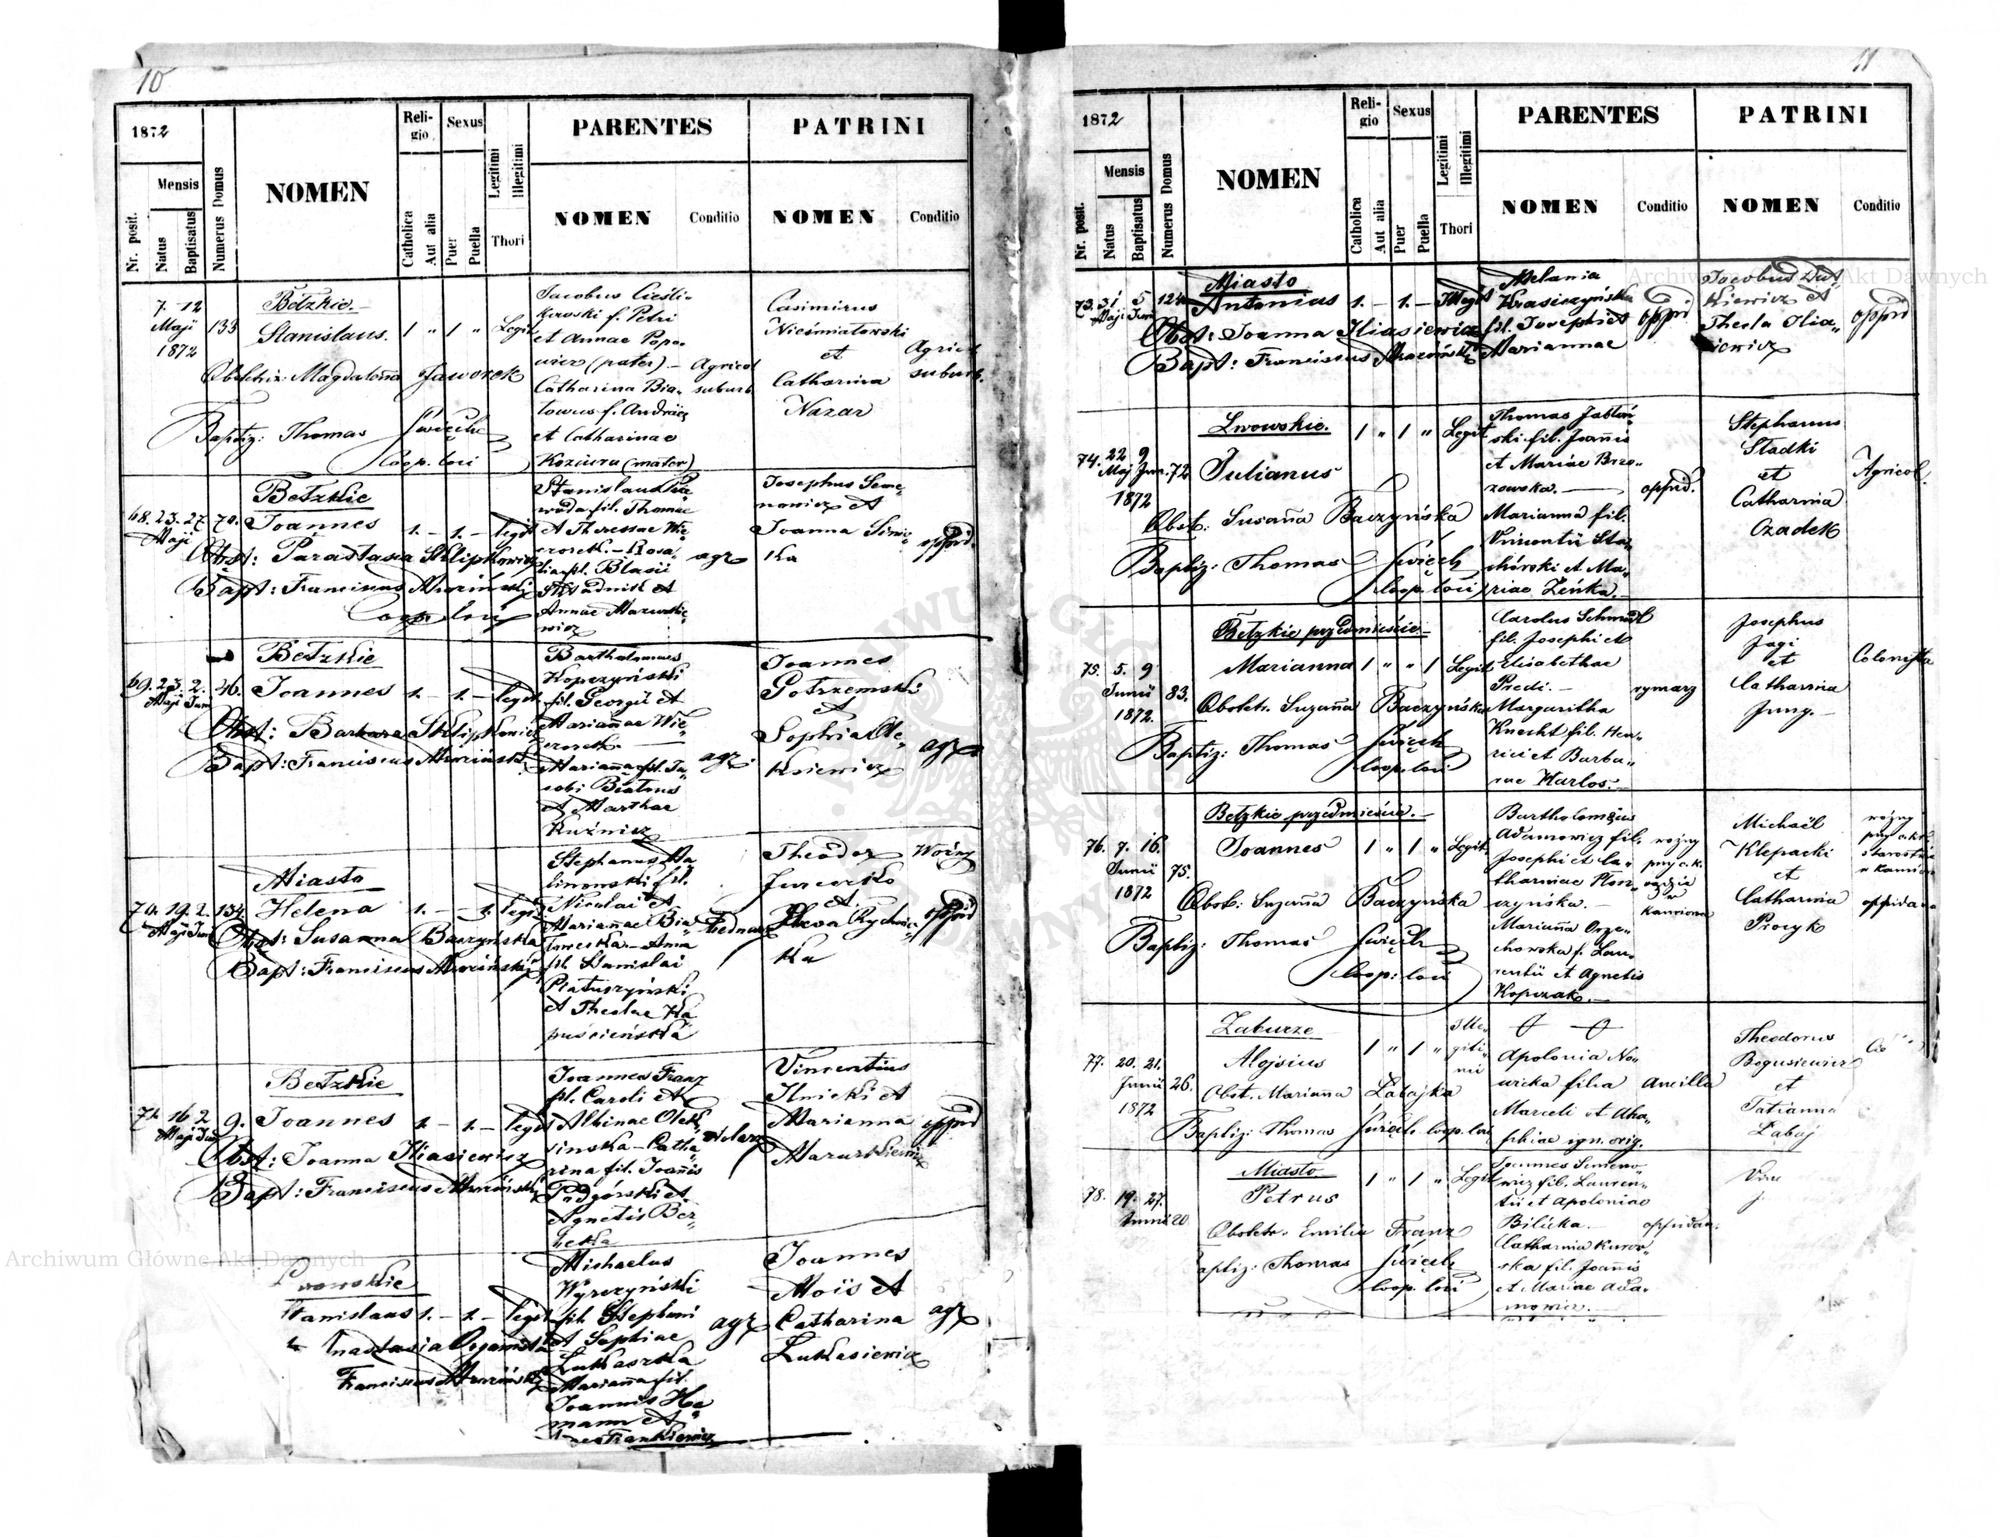 10
1872
Mensis
Nr. posit.
Natus
Baptisatus
Numerus Domus
NOMEN
Religio
Catholica
Aut alia
Sexus
Puer
Puella
Legitimi
Illegitimi
Thori
PARENTES
NOMEN
Conditio
PATRINI
NOMEN
Conditio
7. 12
Maji
1872
133
Bełzkie.
Stanislaus.
1 " 1 " Legit
Obstetrix: Magdalena Jaworek
Baptiz: Thomas Święch
Coop. loci
Jacobus Cieśli-
kowski f. Petri
et Annae Popo-
wicz (pater).
Catharina Bia-
towus f. Andreae
et Catharinae
Koziura (mater)
Agricol
suburb
Casimirus
Nieśmiatowski
et
Catharina
Nazar
Agricol
suburb.
68. 23. 27. 70.
Maji
Bełzkie
Joannes
1. – 1. – legit
Obst: Parastasia Sklipkowicz
Bapt: Franciscus Mroziński
Coop. loci
fil. Thomae
et Theresiae Wie-
czorek. – Rosa-
lia fil. Blasii
et
Annae Mazurkie-
wicz
agr
Josephus Seme-
nowicz et
Joanna
ka
oppid.
69. 23. 2. 46.
Maji Juni
Bełzkie
Joannes
1. – 1. – legit
Obst: Barbara Sklipkowicz
Bapt: Franciscus Mroziński.
Bartholomaeus
Kopczyński
fil. Georgii et
Mariannae Wie-
czorek.
Marianna fil. Ja-
cobi Białous
et Marthae
Kuźnicz
agr.
Joannes
Potrzemski
et
Sophia Ole-
ksiewicz
agr
70. 19. 2. 134
Maji Juni
Miasto
Helena
1. – – 1. legit
Obst: Susanna Baczyńska
Bapt: Franciscus Mroziński
Stephanus Ma-
linowski fil.
Nicolai et
Mariannae Bia-
towska – Anna
fil. Stanislai
Piatuszyński
et Theclae Ka-
puścieńska
Bednarz
Theodor
Jurczko
et
Ewa Rychwic-
ka
Woźny
oppid
71. 16. 2 9.
Maji Juni
Bełzkie
Joannes
1. – 1. – legit
Obst: Joanna Iliasiewicz
Bapt: Franciscus Mroziński
Joannes Franz
fil. Caroli et
Albinae Olek-
sinska – Catha-
rina fil. Joannis
Podgórski et
Agnetis Ber-
becka
stolarz
Vincentius
Ilnicki et
Marianna
Mazurkiewicz
oppid
Lwowskie
Stanislaus
1. – 1. – legit
Anastasia Organista
Franciscus Mroziński
Michaelus
Wyrczyński
fil. Stephani
et Sophiae
Łukaszka
Marianna fil.
Joannis He-
mann et
Frankiewicz
agr
Joannes
Mois et
Catharina
Łukasiewicz
agr
11
1872
Mensis
Nr. posit.
Natus
Baptisatus
Numerus Domus
NOMEN
Religio
Catholica
Aut alia
Sexus
Puer
Puella
Legitimi
Illegitimi
Thori
PARENTES
NOMEN
Conditio
PATRINI
NOMEN
Conditio
73. 31 5 124
Maji Juni
Miasto
Antonius
1. – 1. – Illegit
Obst: Joanna Iliasiewicz
Bapt: Franciscus Mroziński
Melania
Krasiczyńska
fil. Josephi et
Mariannae
oppid
Jacobus Dut-
kiewicz et
Thecla Olia-
siewicz
oppid
74. 22 9 72
Maj Jun.
1872
Lwowskie.
Julianus
1 " 1 " Legit
Obst. Susanna Baczyńska
Baptiz: Thomas Święch
Coop. loci
Thomas Jabłoń-
ski fil. Joannis
et Mariae Brzo-
zowska.
Marianna fil.
Vincentii Sta-
chórski et Ma-
riae Zieńka.
oppid.
Stephanus
Stadki
et
Catharina
Ozadek
Agricol.
75. 5. 9 83.
Junii
1872.
Bełzkie przedmieście
Marianna
1 " " 1 Legit
Obstetr. Suzanna Baczyńska
Baptiz: Thomas Święch
Coop. loci
Carolus Schmidt
fil. Josephi et
Elisabethae
Predi.
Margaritha
Knecht fil. Hen-
rici et Barba-
rae Karlos.
rymarz
Josephus
Jagi
et
Catharina
Jung.
Colonista
76. 7. 16. 75.
Junii
1872
Bełzkie przedmieście.
Joannes
1 " 1 " Legit
Obst: Suzanna Baczyńska
Baptiz: Thomas Święch
Coop: loci
Bartholomaeus
Adamowicz fil.
Josephi et Ca-
tharinae
Marianna Orze-
chowska f. Lau-
rentii et Agnetis
Kopczak.
woźny
przy c.k.
Michaël
Klepacki
et
Catharina
Procyk
woźny
przy c.k.
oppidana
77. 20. 21. 26.
Junii
1872
Zaburze
Alojsius
1 " 1 " Illegitimi
Obst. Marianna Łabajka
Baptiz: Thomas Święch coop. loci
Apolonia No-
wicka filia
Marceli et Aha-
phiae ign. orig.
Ancilla
Theodorus
Bogusiewicz
et
Tatianna
Łabaj
78. 19. 27. 20.
Junii
Miasto
Petrus
1 " 1 " Legit
Obstetr. Emilia Franz
Baptiz: Thomas Święch
Coop. loci
Joannes Semeno-
wicz fil. Lauren-
tii et Apoloniae
Bilicka.
Catharina Kurow-
ska fil. Joannis
et Mariae Ada-
mowicz.
oppidan.
Archiwum Główne Akt Dawnych
Archiwum Główne Akt Dawnych